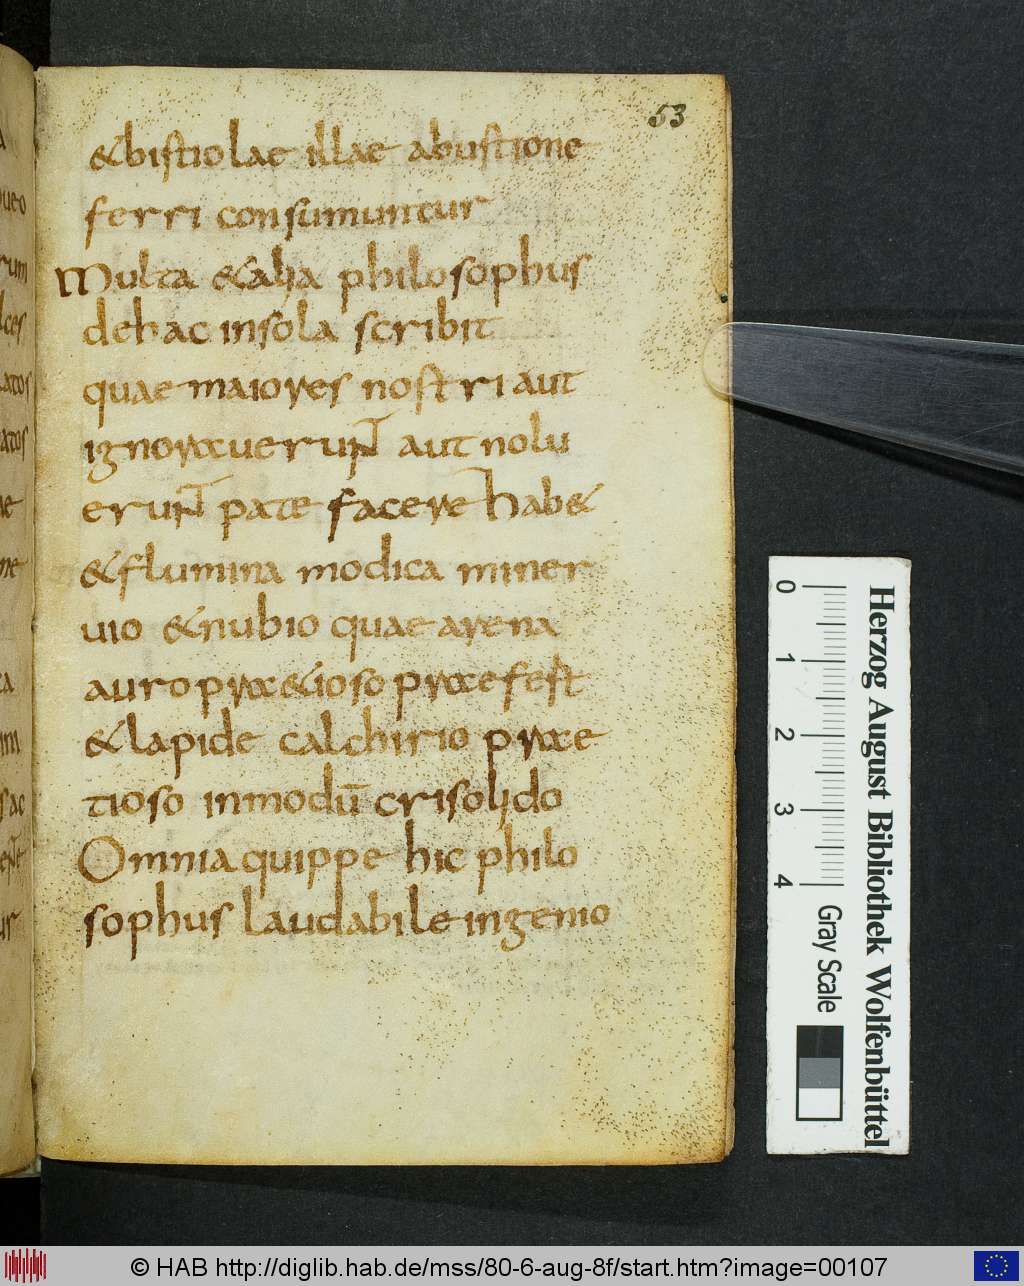 53
&bistiolae illae abustione
ferri consumuntur
Multa &alia philosophus
dehac insola scribit
quae maiores nostri aut
ignoraverunt aut nolu
erunt pate facere hab&
&flumina modica miner
vio &nubio quae arena
auro pra&ioso praefest
&lapide calchirio prae
tioso inmodū crisolido
Omnia quippe hic philo
sophus laudabile ingenio
0 1 2 3 4
Gray Scale
Herzog August Bibliothek Wolfenbüttel
© HAB http://diglib.hab.de/mss/80-6-aug-8f/start.htm?image=00107